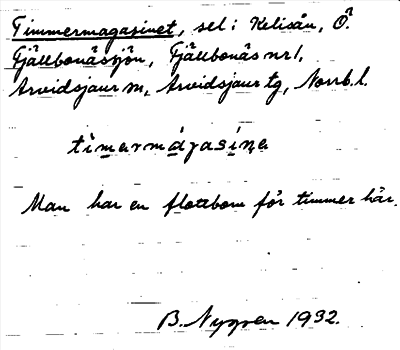 Timmermagasinet, sel i Kelisån, Ö.
Fjällbonässjön, Fjällbonäs nr 1,
Arvidsjaur sn, Arvidsjaur tg, Norrb. l.
timərmágasínə
Man har en flottbom för timmer här.
B. Nygren 1932.